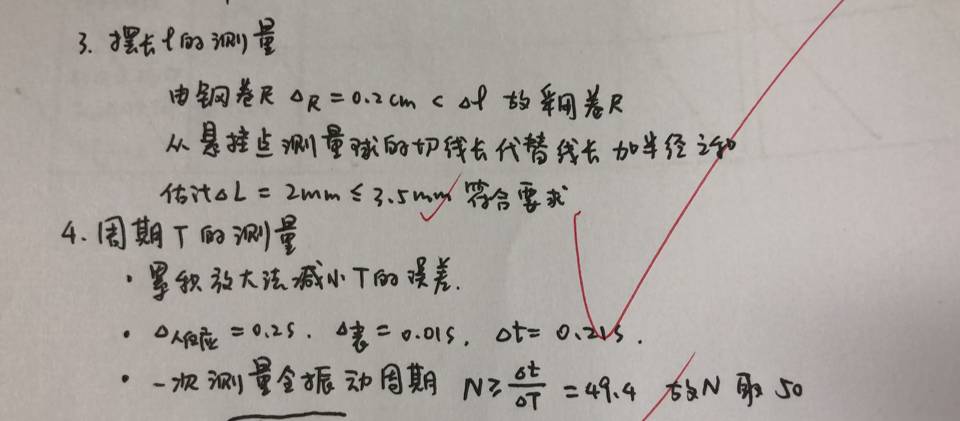 3. 摆长l的测量
由钢卷尺 Δ_R = 0.2cm < Δl 故采用卷尺
从悬挂点测量球的切线长代替线长加半径之和
估计ΔL = 2mm ≤ 3.5mm 符合要求
4. 周期T的测量
· 累积放大法减小T的误差.
· Δ人反应 = 0.2s. Δ表 = 0.01s, Δt = 0.21s.
· 一次测量全振动周期 N ≥ Δt/ΔT = 49.4 故N取50